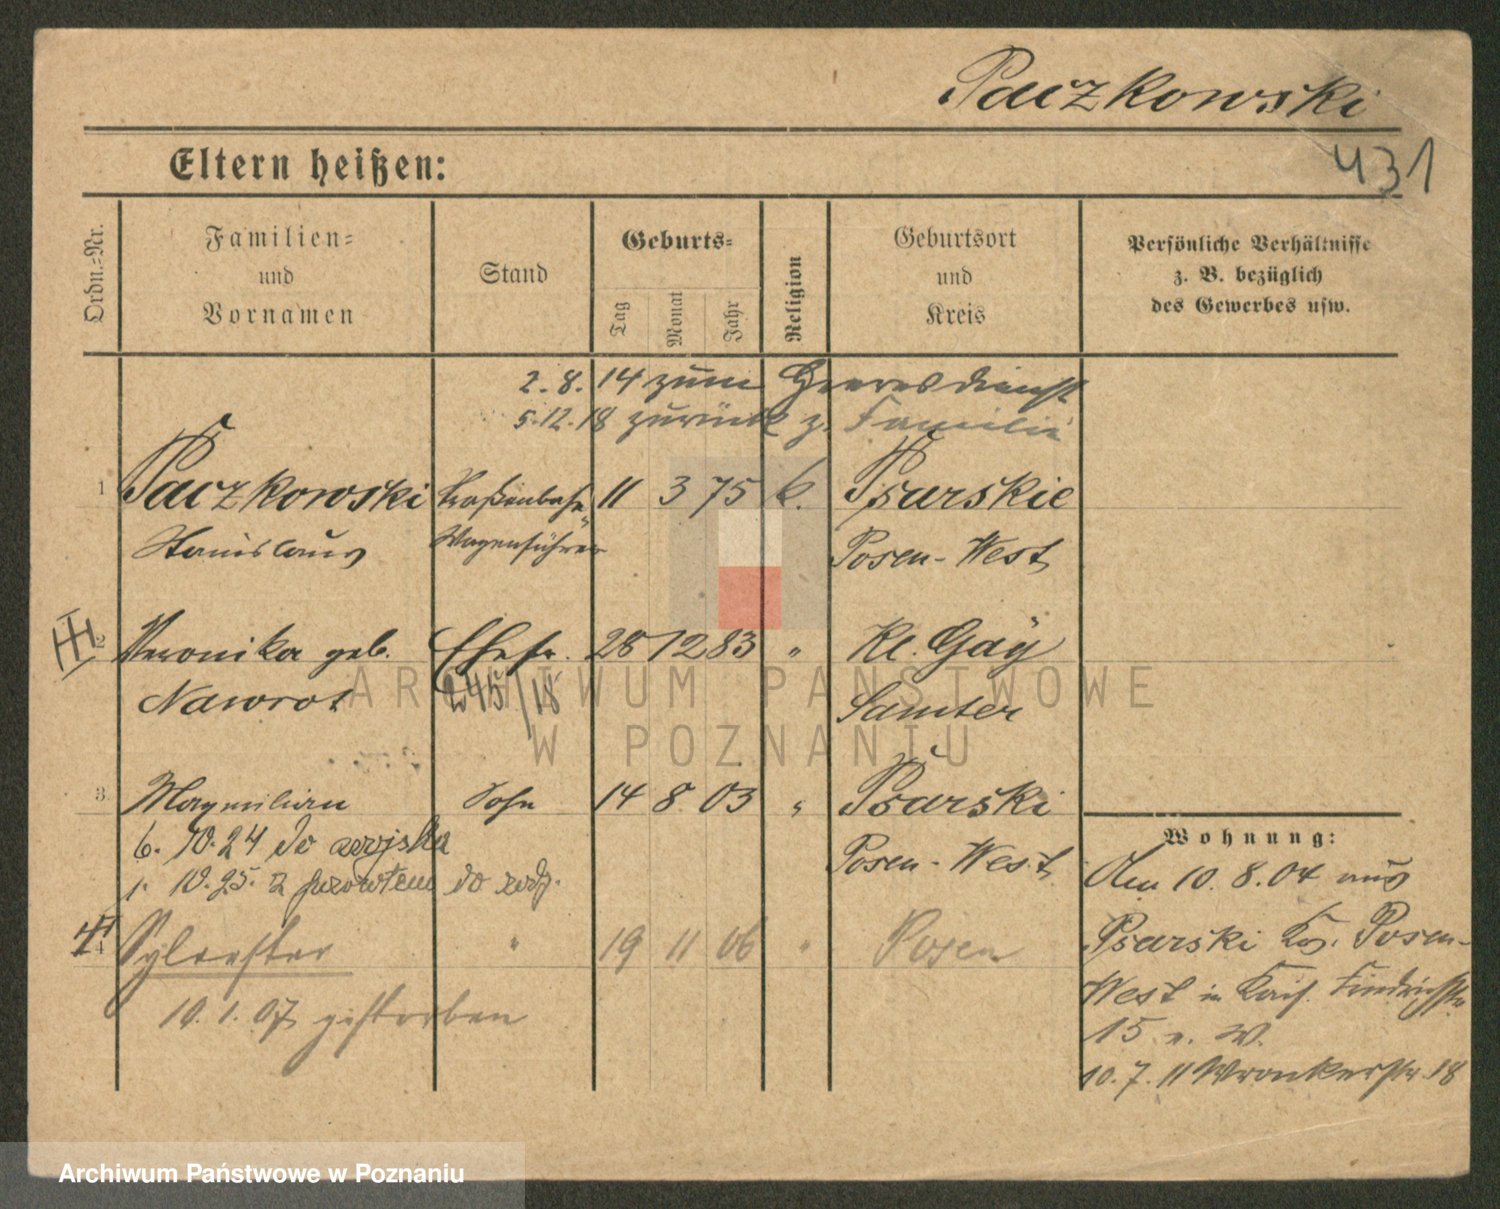 Paczkowski
431
Eltern heißen:
Ordn.-Nr.
Familien-
und
Vornamen
Stand
Geburts-
Tag
Monat
Jahr
Religion
Geburtsort
und
Kreis
Persönliche Verhältnisse
z. B. bezüglich
des Gewerbes usw.
2. 8. 14 zum Heeresdienst
5.12.18 zurück z. Familie
1 Paczkowski Straßenbahn 11 3 75 k. Psarskie
Stanislaus Wagenführer Posen-West
2 Veronika geb. Ehefr. 28 12 83 " Kl. Gay
Nawrot 245/18 Samter
3 Maxmilian Sohn 14 8 03 " Psarski
6. 10. 24 do wojska Posen-West
1. 10. 25. z powrotem do rodz.
4 Sylvester " 19 11 06 " Posen
10. 1. 07 gestorben
Wohnung:
Am 10. 8. 04 aus
Psarski Kr. Posen-
West in Kais. Friedrichstr
15 v. W.
10. 7. 11 Wronkerstr. 18
ARCHIWUM PAŃSTWOWE
W POZNANIU
Archiwum Państwowe w Poznaniu